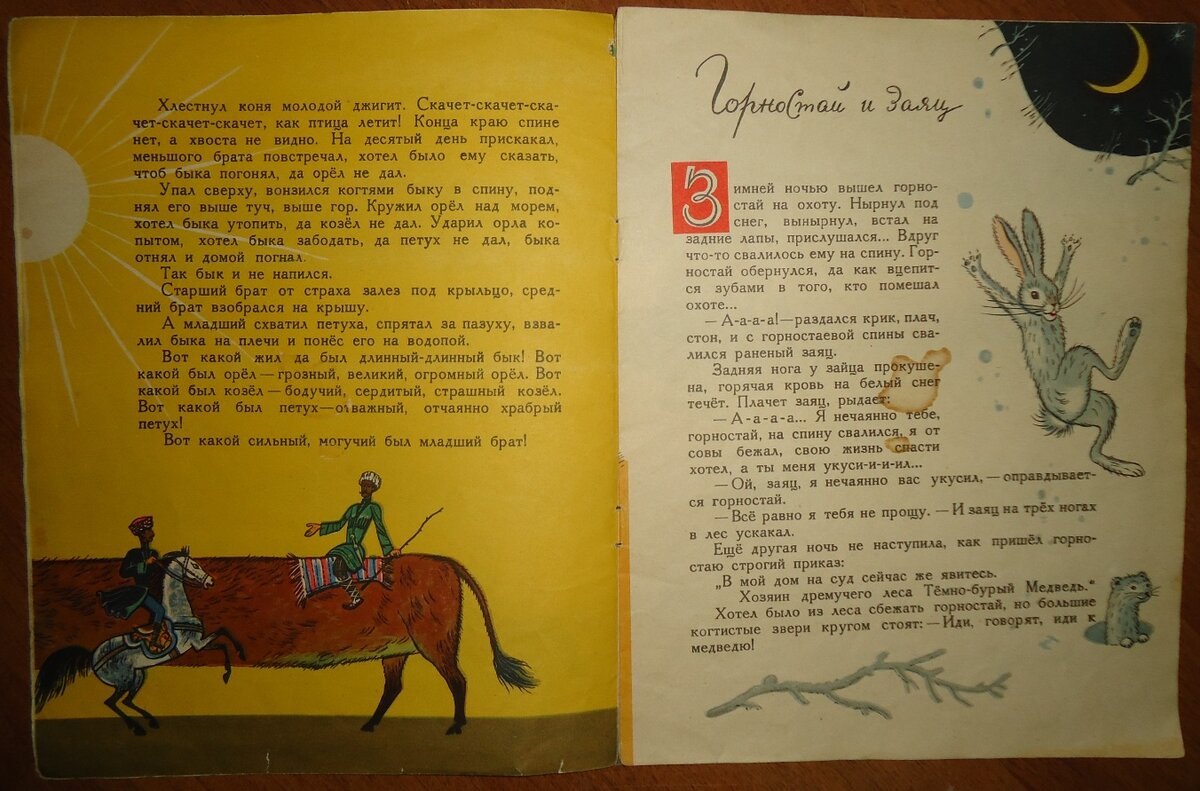 Хлестнул коня молодой джигит. Скачет-скачет-ска-
чет-скачет-скачет, как птица летит! Конца краю спине
нет, а хвоста не видно. На десятый день прискакал,
меньшого брата повстречал, хотел было ему сказать,
чтоб быка погонял, да орёл не дал.
Упал сверху, вонзился когтями быку в спину, под-
нял его выше туч, выше гор. Кружил орёл над морем,
хотел быка утопить, да козёл не дал. Ударил орла ко-
пытом, хотел быка забодать, да петух не дал, быка
отнял и домой погнал.
Так бык и не напился.
Старший брат от страха залез под крыльцо, сред-
ний брат взобрался на крышу.
А младший схватил петуха, спрятал за пазуху, взва-
лил быка на плечи и понёс его на водопой.
Вот какой жил да был длинный-длинный бык! Вот
какой был орёл — грозный, великий, огромный орёл. Вот
какой был козёл — бодучий, сердитый, страшный козёл.
Вот какой был петух — отважный, отчаянно храбрый
петух!
Вот какой сильный, могучий был младший брат!
Горностай и Заяц
Зимней ночью вышел горно-
стай на охоту. Нырнул под
снег, вынырнул, встал на
задние лапы, прислушался... Вдруг
что-то свалилось ему на спину. Гор-
ностай обернулся, да как вцепит-
ся зубами в того, кто помешал
охоте...
— А-а-а-а! — раздался крик, плач,
стон, и с горностаевой спины сва-
лился раненый заяц.
Задняя нога у зайца прокуше-
на, горячая кровь на белый снег
течёт. Плачет заяц, рыдает:
— А-а-а-а... Я нечаянно тебе,
горностай, на спину свалился, я от
совы бежал, свою жизнь спасти
хотел, а ты меня укуси-и-и-ил...
— Ой, заяц, я нечаянно вас укусил, — оправдывает-
ся горностай.
— Всё равно я тебя не прощу. — И заяц на трёх ногах
в лес ускакал.
Ещё другая ночь не наступила, как пришёл горно-
стаю строгий приказ:
„В мой дом на суд сейчас же явитесь.
Хозяин дремучего леса Тёмно-бурый Медведь.“
Хотел было из леса сбежать горностай, но большие
когтистые звери кругом стоят: — Иди, говорят, иди к
медведю!